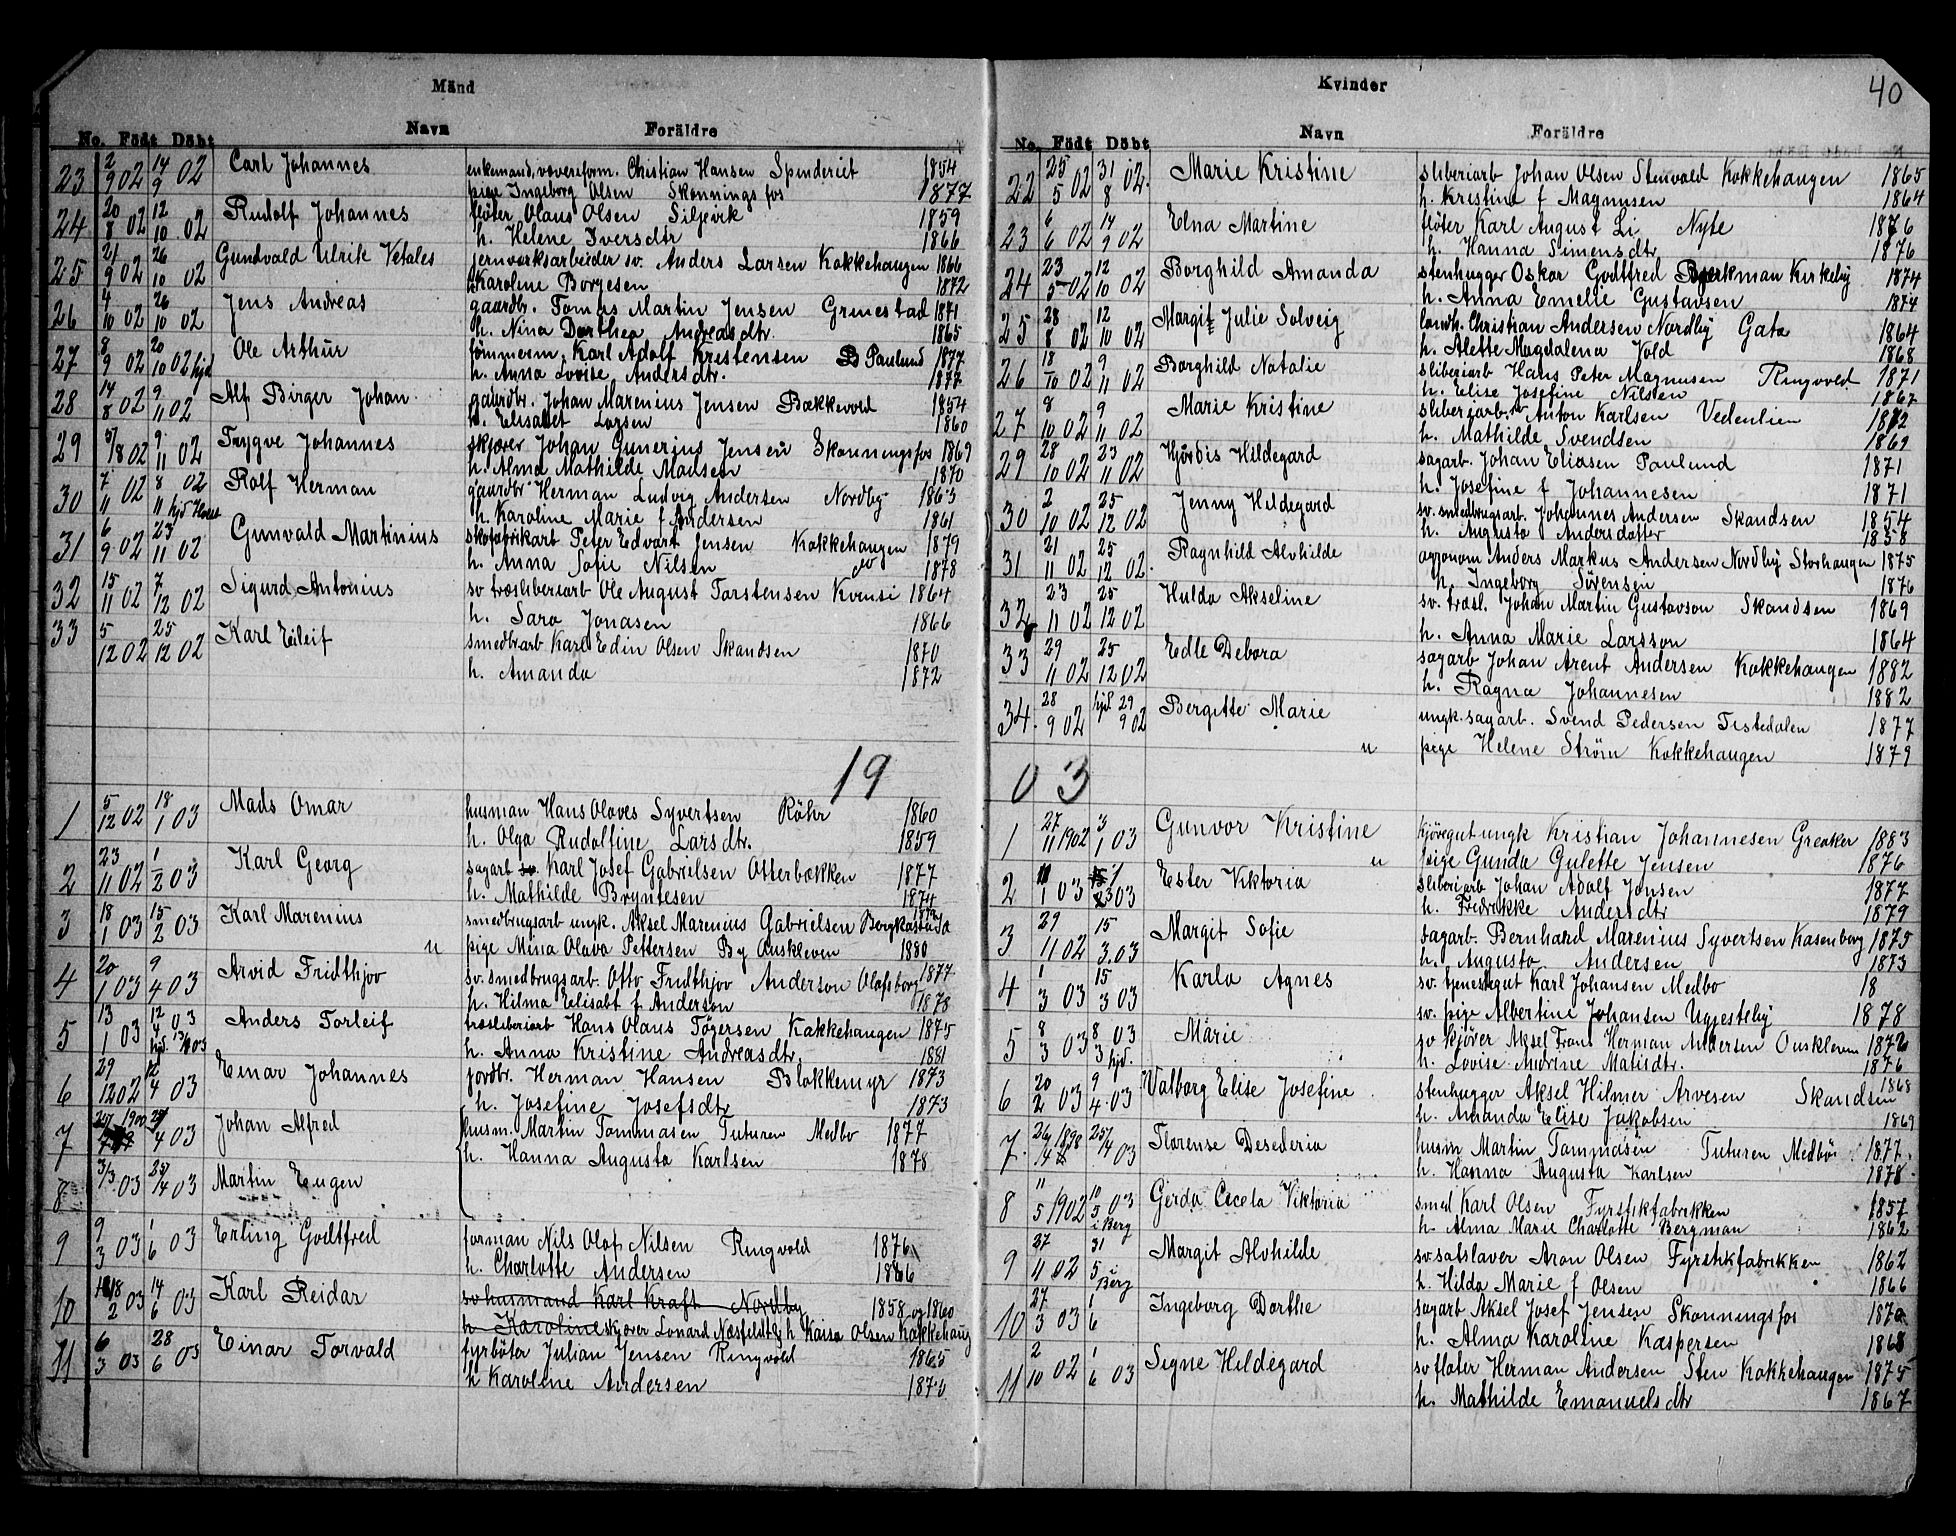 40
Mänd
No. Födt Döbt Navn Foräldre
23 2/9 02 14/9 02 Carl Johannes enkemand, vævereform. Christian Hansen Spinderiet 1854
pige Ingeborg Olsen Skonningsfos 1877
24 20/8 02 12/10 02 Rudolf Johannes fløter Olaus Olsen Siljevik 1859
h. Helene Iversdtr 1866
25 21/9 02 26/10 02 Gundvald Ulrik Vetales jernverksarbeider sv. Anders Larsen Kokkehaugen 1866
Karoline Borgesen 1872
26 4/10 02 26/10 02 Jens Andreas gaardbr. Tomas Martin Jensen Grinestad 1871
h. Nina Dorthea Andreasdtr. 1865
27 8/9 02 20/10 02 hjd Ole Arthur tømmerm. Karl Adolf Kristensen Paulund 1877
h. Anna Lovise Andersdtr. 1877
28 14/8 02 9/11 02 Alf Birger Johan gaardbr. Johan Marenius Jensen Bækkevold 1854
h. Elisabet Larsen 1860
29 5/8 02 9/11 02 Trygve Johannes skjører Johan Gunerius Jensen Skonningsfos 1869
h. Alma Mathilde Madsen 1870
30 7/11 02 8/11 02 hjd Rolf Herman gaardbr Herman Ludvig Andersen Nordby 1863
h. Karoline Marie f Andersen 1861
31 6/9 02 23/11 02 Gunvald Martinius skofabrikarb Peter Edvart Jensen Kokkehaugen 1879
h. Anna Sofie Nilsen do 1878
32 15/11 02 7/12 02 Sigurd Antonius sv træsliberiarb Ole August Torstensen Kvensi 1864
h. Sara Jonasen 1866
33 5/12 02 25/12 02 Karl Eileif smedbrarb Karl Edin Olsen Skandsen 1870
h. Amanda 1872
19
1 5/12 02 18/1 03 Mads Omar husman Hans Olaves Syvertsen Röhr 1860
h. Olga Rudolfine Larsdtr. 1859
2 23/11 02 1/2 03 Karl Georg sagarb sv. Karl Josef Gabrielsen Otterbækken 1877
h. Mathilde Bryntesen 1874
3 18/1 03 15/2 03 Karl Marenius smedbrugsarb ungk. Aksel Marenius Gabrielsen Borgkastada
u pige Mina Olava Pettersen By Ouskleven 1880
4 20/1 03 9/4 03 Arvid Fridthjov sv. smedbrugsarb. Otto Fridthjov Anderson Olafsborg 1877
h. Hilma Elisabt f. Anderson 1878
5 13/1 03 12/4 03 hjd. 13/1 03 Anders Torleif træsliberiarb Hans Olaus Tögersen Kokkehaugen 1875
h. Anna Kristine Andreasdtr. 1881
6 29/12 02 12/4 03 Einar Johannes jordbr. Herman Hansen Blokkemyr 1873
h. Josefine Josefsdtr 1873
7 1900 25/4 03 Johan Alfred husm. Martin Tommasen Tuturen Medbo 1877
h. Hanna Augusta Karlsen 1878
8 3/3 03 25/4 03 Martin Eugen
9 9/3 03 1/6 03 Erling Godtfred forman Nils Olof Nilsen Ringvold 1876
h. Charlotte Andersen 1866
10 18/2 03 14/6 03 Karl Reidar sv husmand Karl Kraft Nordby 1858 og 1860
h. Karoline skjører Lonard Næsfeldt og h Kaisa Olsen Kokkehaug
11 6/3 03 28/6 03 Einar Torvald fyrböter Julian Jensen Ringvold 1865
h Karolene Andersen 1870
Kvinder
No. Födt Döbt Navn Foräldre
22 25/5 02 31/8 02. Marie Kristine sliberiarb Johan Olsen Stenvald Kokkehaugen 1865
h. Kristina f Magnusen 1864
23 6/6 02 14/9 02 Elna Martine fløter Karl August Li Nyte 1876
h. Hanna Simensdtr 1876
24 23/5 02 12/10 02 Borghild Amanda stenhugger Oskar Godtfred Bjerkman Kirkeby 1874
h. Anna Emelie Gustavsen 1874
25 28/8 02 12/10 02 Margit Julie Solveig landh. Christian Andersen Nordby Gata 1864
h. Alette Magdalena Vold 1868
26 18/10 02 9/11 02 Borghild Natalie sliberiarb Hans Peter Magnusen Ringvold 1871
h. Elise Josefine Nilsen 1867
27 8/10 02 9/11 02 Marie Kristine sliberiarb. Anton Karlsen Vedenlien 1872
h. Mathilde Svendsen 1869
29 28/10 02 23/11 02 Hjördis Hildegard sagarb. Johan Eliasen Paulund 1871
h. Josefine f Johannesen 1871
30 2/10 02 25/12 02 Jenny Hildegard sv. smedbrugsarb. Johannes Andersen Skandsen 1854
h. Augusta Andersdatter 1858
31 21/11 02 25/12 02. Ragnhild Alvhilde agronom Anders Markus Andersen Nordby Storhaugen 1875
h. Ingeborg Sørensen 1876
32 23/11 02 25/12 02 Hulda Akseline sv. træsl. Johan Martin Gustavson Skandsen 1869
h. Anna Marie Larsson 1864
33 29/11 02 25/12 02 Edle Debora sagarb Johan Arent Andersen Kokkehaugen 1882
h. Ragna Johannesen 1882
34. 28/9 02 hjd. 29/9 02 Bergitte Marie ungk. sagarb. Svend Pedersen Tistedalen 1877
u pige Helene Strøm Kokkehaugen 1879
03
1 27/11 1902 3/1 03 Gunvor Kristine kjöregut ungk Kristian Johannesen Greaker 1883
u pige Gunda Gulette Jensen 1876
2 1/1 03 03 Ester Viktoria sliberiarb Johan Adolf Jonsen 1877
h. Fredrikke Andersdtr 1879
3 29/11 02 15/3. 03 Margit Sofie sagarb. Bernhard Marenius Syvertsen Kasenborg 1875
h. Augusta Andersen 1873
4 1/3 03 15/3 03 Karla Agnes sv. tjenestegut Karl Johansen Medbo 18
sv. pige Albertine Johansen Ugjesteby 1878
5 8/3 03 8/3 03 hjd. Marie sv kjörer Aksel Frans Herman Andersen Ouskleven 1872
h. Lovise Andrine Matisdtr. 1876
6 20/2 03 9/4 03 Valborg Elise Josefine stenhugger Aksel Hilmer Arvesen Skandsen 1868
h. Amanda Elise Jakobsen 1869
7. 26/4 1898 25/4 03 Florense Desederia husm Martin Tommasen Tuturen Medbö 1877.
h. Hanna Augusta Karlsen 1878.
8 11/5 1902 10/5 03 i Berg Gerda Cecela Viktoria smed Karl Olsen Fyrstikfabrikken 1857
h. Alma Marie Charlotte Bergman 1862
9 27/11 02 31/5 Berg Margit Alvhilde sv. satslaver Aron Olsen Fyrstikfabrikken 1862
h. Hilda Marie f Olsen 1866
10 27/3 03 1/6 Ingeborg Dorthe sagarb Aksel Josef Jensen Skonningsfos 1870
h. Alma Karoline Kaspersen 1868
11 2/10 02 1/6 03 Signe Hildegard sv fløter Herman Andersen Sten Kokkehaugen 1875
h. Mathilde Emanuelsdtr 1867